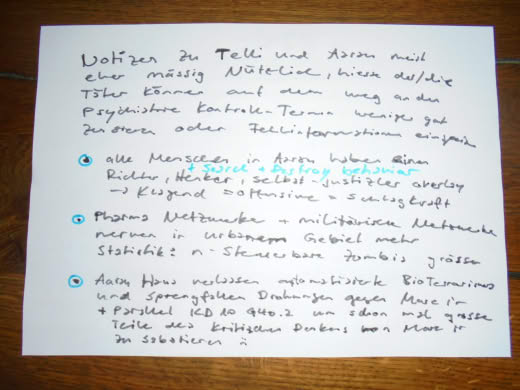 Notizen zu Telli und Aarau meist
eher mässig Nützlich, hiesse der/die
Täter können auf dem weg an den
Psychiatrie Kontroll-Termin weniger gut
oder Telliinformationen
alle Menschen in Aarau haben einen
+ Search + Destroy behavior
Richter, Henker, selbst-justizler overlay
→ Klagend = offensive = schlagkraft
Pharma Netzwerke + militärische Netzwerke
nerven in urbanem Gebiet mehr
Statistik: n-Steuerbare Zombis grösser
Aarau Haus verlassen automatisierte BioTerrorismus
und sprengfallen Drohungen gegen
+ Parallel ICD 10 G40.2 um schon mal grosse
Teile des Kritischen Denkens von
zu sabotieren